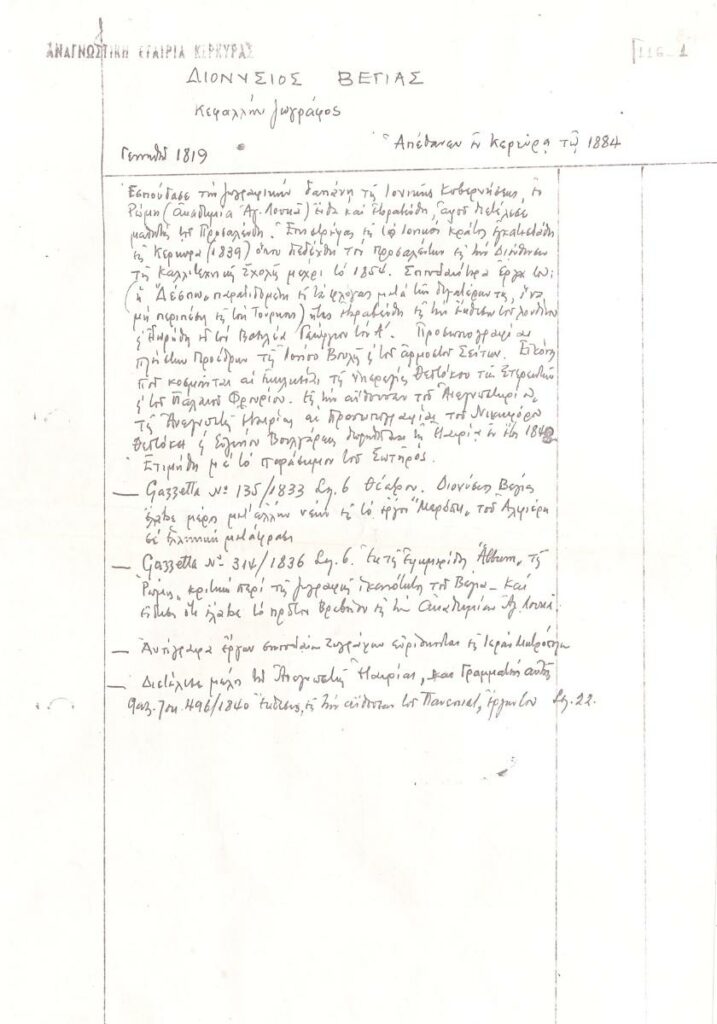 ΑΝΑΓΝΩΣΤΙΚΗ ΕΤΑΙΡΙΑ ΚΕΡΚΥΡΑΣ
116-1
ΔΙΟΝΥΣΙΟΣ ΒΕΓΙΑΣ
Κεφαλλήν ζωγράφος
Γεννηθείς 1819
Ἀπέθανεν ἐν Κερκύρᾳ τῷ 1884
Ἐσπούδασε τὴν ζωγραφικὴν δαπάνῃ τῆς Ἰονικῆς Κυβερνήσεως, ἐν
Ρώμῃ (ἀκαδημία Ἁγ. Λουκᾶ) ἔνθα καὶ ἐβραβεύθη, ἀφοῦ διετέλεσε
μαθητὴς τοῦ Προσαλένδη. Ἐπιστρέψας εἰς τὸ Ἰονικὸν κράτος ἐγκατεστάθη
εἰς Κέρκυρα (1839) ὅπου διεδέχθη τὸν Προσαλένδην εἰς τὴν Διεύθυνσιν
τῆς Καλλιτεχνικῆς Σχολῆς μέχρι τὸ 1854. Σπουδαιότερα ἔργα του:
(ἡ Δέσπω παραδιδομένη εἰς τὰς φλόγας μετὰ τῶν θυγατέρων της, ἵνα
μὴ περιπέσῃ εἰς τοὺς Τούρκους) ἥτις ἐβραβεύθη εἰς τὴν ἔκθεσιν τοῦ Λονδίνου
τὸν Βασιλέα Γεώργιον τὸν Α'. Προσωπογραφίας
πλείστων Προέδρων τῆς Ἰονίου Βουλῆς τοῦ ἁρμοστοῦ Σεΐτων. Εἰκόνες
ποὺ κοσμοῦνται αἱ ἐκκλησίαι τῆς Ὑπεραγίας Θεοτόκου τῶν
τοῦ Παλαιοῦ Φρουρίου. Εἰς τὴν αἴθουσαν τοῦ Ἀναγνωστηρίου
τῆς Ἀναγνωστικῆς Ἑταιρίας αἱ προσωπογραφίαι τοῦ Νικηφόρου
Θεοτόκη Εὐγενίου Βουλγάρεως
Ἐτιμήθη μὲ τὸ παράσημον τοῦ Σωτῆρος.
— Gazzetta Nº 135/1833 Σελ. 6 Θέατρον. Διονύσιος Βεγίας
ἔλαβε μέρος μετ' ἄλλων νέων εἰς τὸ ἔργο "Μερόπη" τοῦ Ἀλφιέρη
σὲ ἑλληνικὴ μετάφραση
— Gazzetta Nº 314/1836 Σελ. 6. Ἐκ τῆς Ἐφημερίδος Album, τῆς
Ρώμης, κριτικὴ περὶ τῆς ζωγραφικῆς ἱκανότητος τοῦ Βεγία — καὶ
εἴδησις ὅτι ἔλαβε τὸ πρῶτον βραβεῖον εἰς τὴν Ἀκαδημίαν Ἁγ. Λουκᾶ.
— Ἀντίγραφα ἔργων σπουδαίων ζωγράφων εὑρίσκονται εἰς Ἱερὰν Μητρόπολιν
— Διετέλεσε μέλος τῆς Ἀναγνωστικῆς Ἑταιρίας, καὶ Γραμματεὺς αὐτῆς
Γαζ. Ἰον. 496/1840 Ἔκθεσις εἰς τὴν αἴθουσαν τοῦ Πανεπιστ. ἔργων του Σελ. 22.